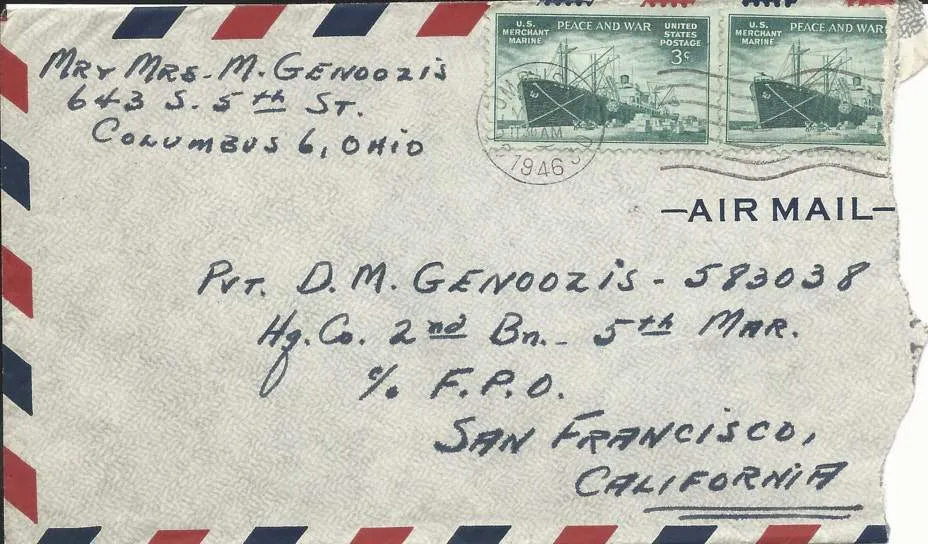 Mr & Mrs. M. Genoozis
643 S. 5th St.
Columbus 6, Ohio
U.S. MERCHANT MARINE PEACE AND WAR UNITED STATES POSTAGE 3¢
U.S. MERCHANT MARINE PEACE AND WAR
1946
AIR MAIL
Pvt. D. M. Genoozis - 583038
Hq. Co. 2nd Bn. - 5th Mar.
c/o F.P.O.
San Francisco,
California